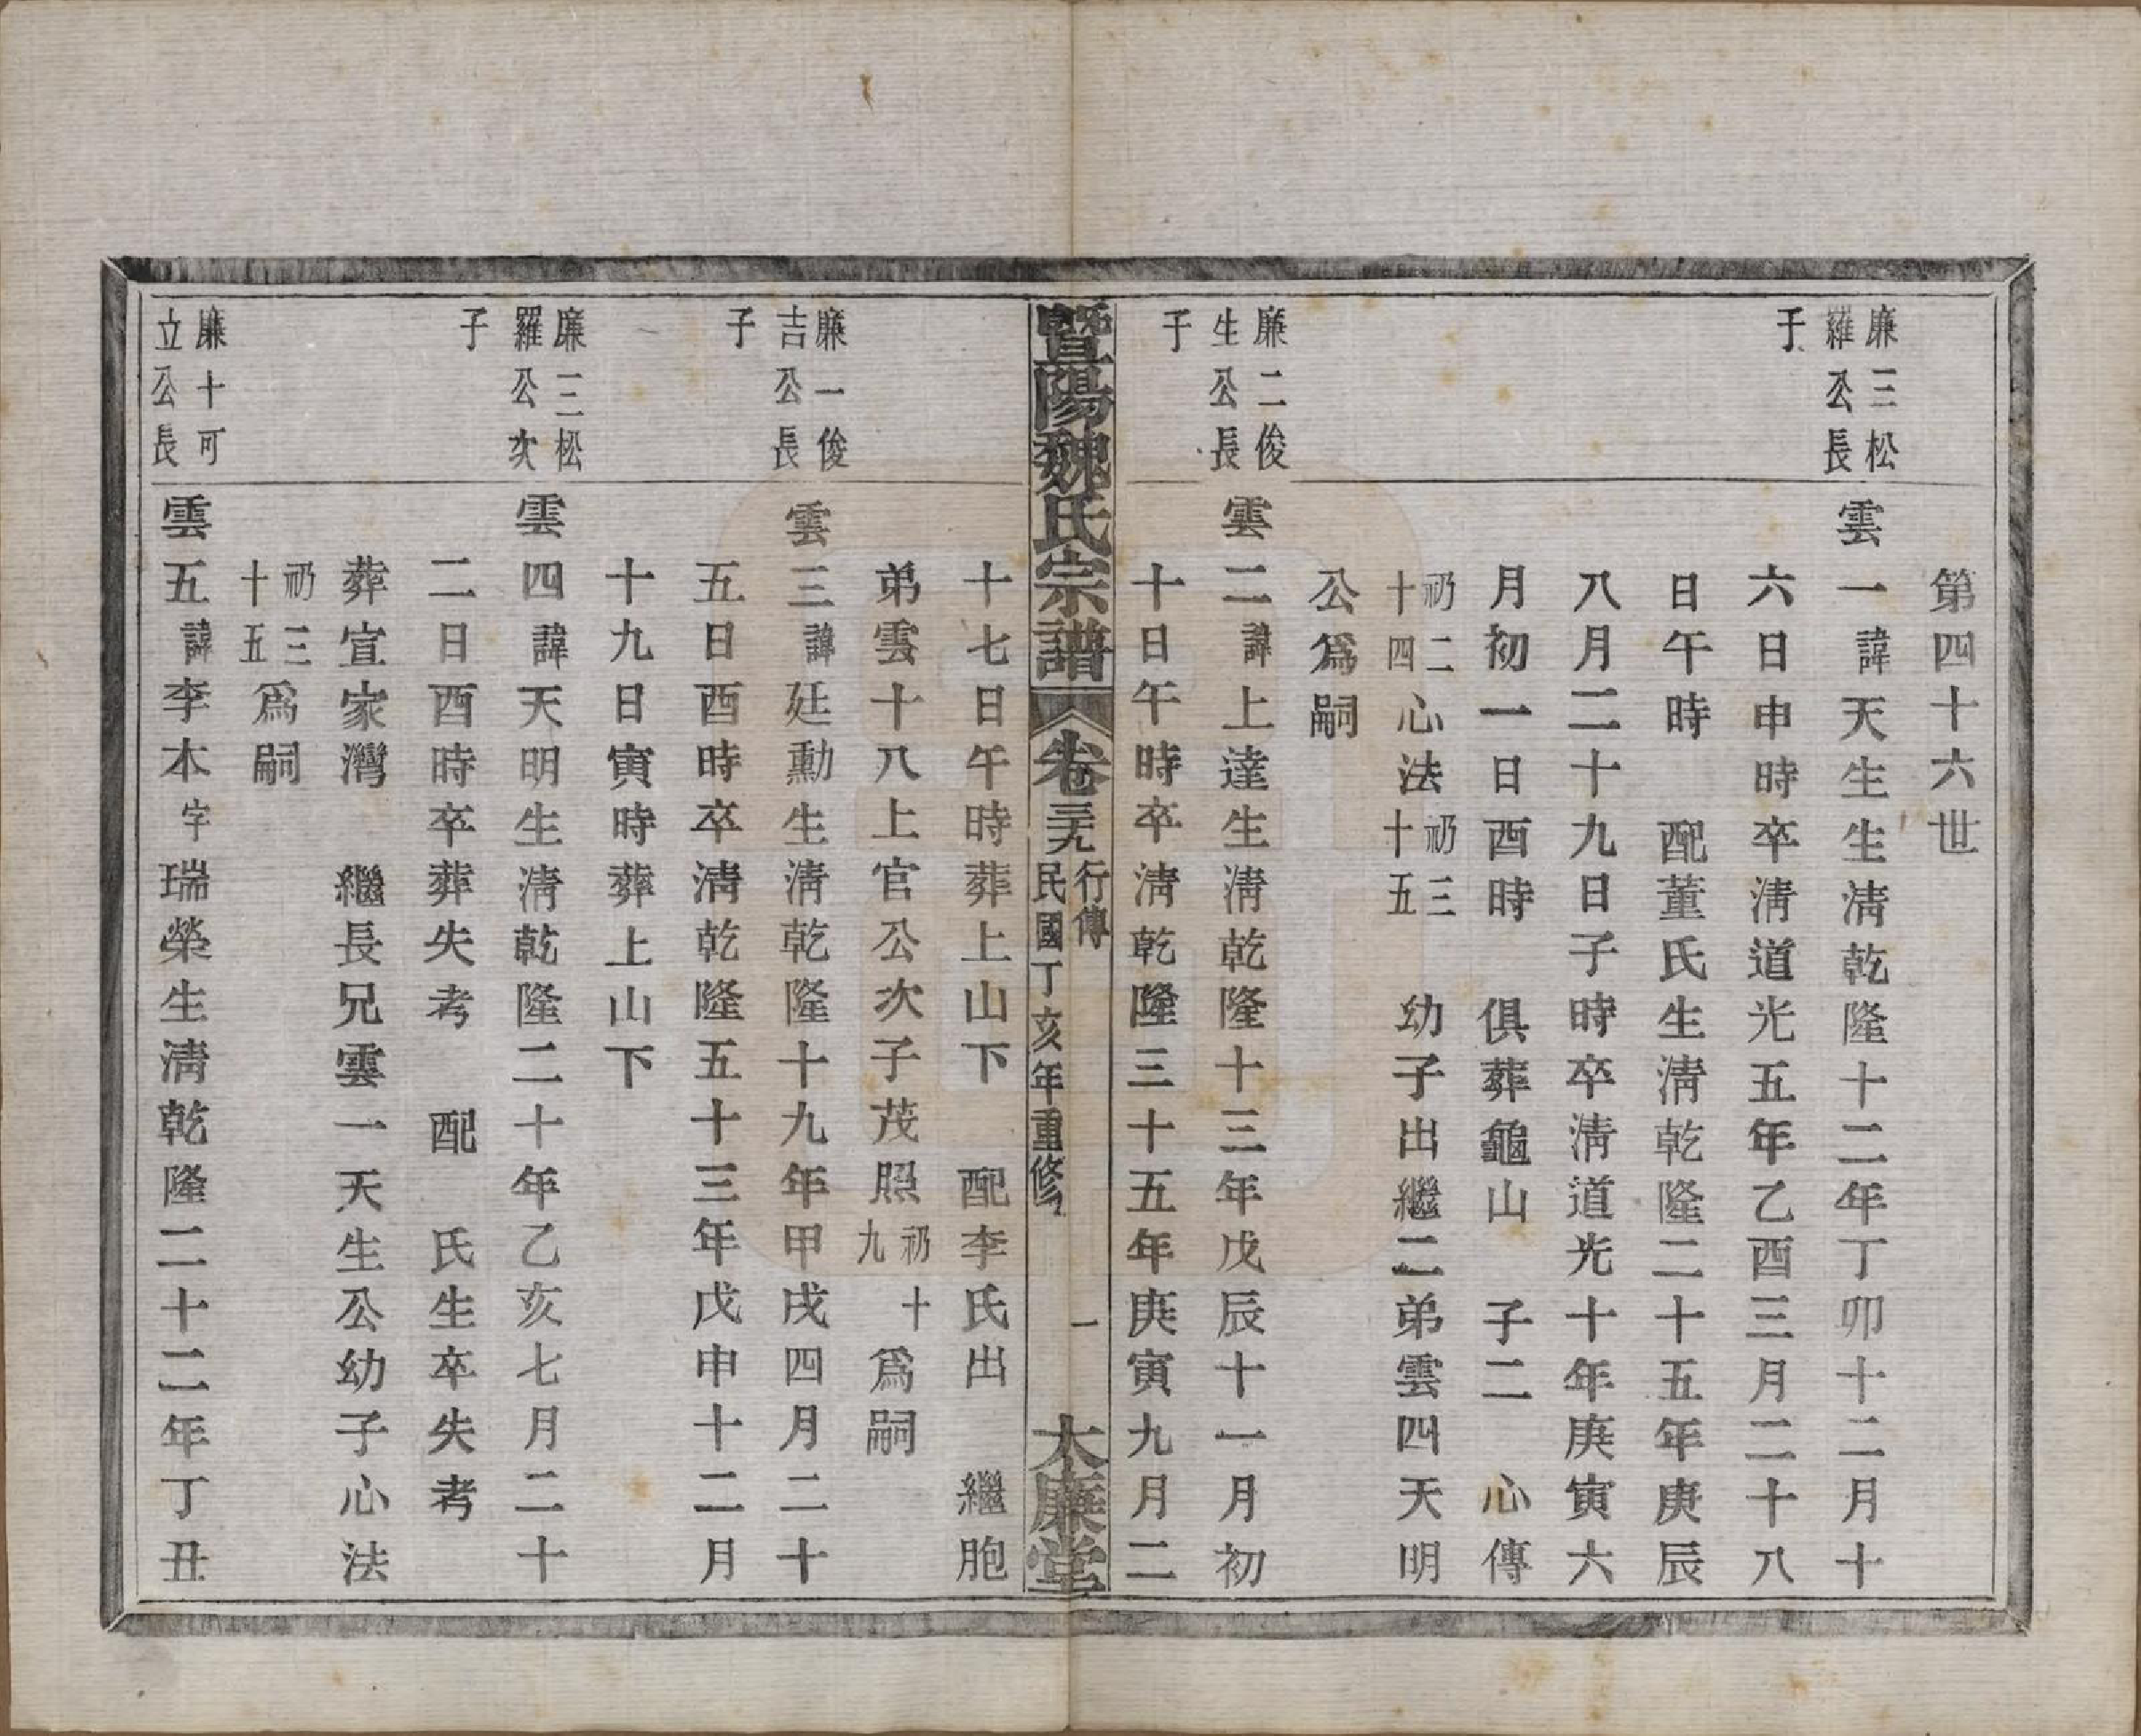 第四十六世
廉三松
羅公長
子
雲一諱天生生淸乾隆十二年丁卯十二月十
六日申時卒淸道光五年乙酉三月二十八
日午時　配董氏生淸乾隆二十五年庚辰
八月二十九日子時卒淸道光十年庚寅六
月初一日酉時　俱葬龜山　子二　心傳
礽二十四心法礽三十五　幼子出繼二弟雲四天明
公爲嗣
廉二俊
生公長
子
雲二諱上達生淸乾隆十三年戊辰十一月初
十日午時卒淸乾隆三十五年庚寅九月二
暨陽魏氏宗譜
卷三九
行傳
民國丁亥年重修
一
大廉堂
十七日午時葬上山下　配李氏出　繼胞
弟雲十八上官公次子茂照礽十九爲嗣
廉一俊
吉公長
子
雲三諱廷勳生淸乾隆十九年甲戌四月二十
五日酉時卒淸乾隆五十三年戊申十二月
十九日寅時葬上山下
廉三松
羅公次
子
雲四諱天明生淸乾隆二十年乙亥七月二十
二日酉時卒葬失考　配　氏生卒失考
葬宣家灣　繼長兄雲一天生公幼子心法
礽三十五爲嗣
廉十可
立公長
雲五諱李本字瑞榮生淸乾隆二十二年丁丑